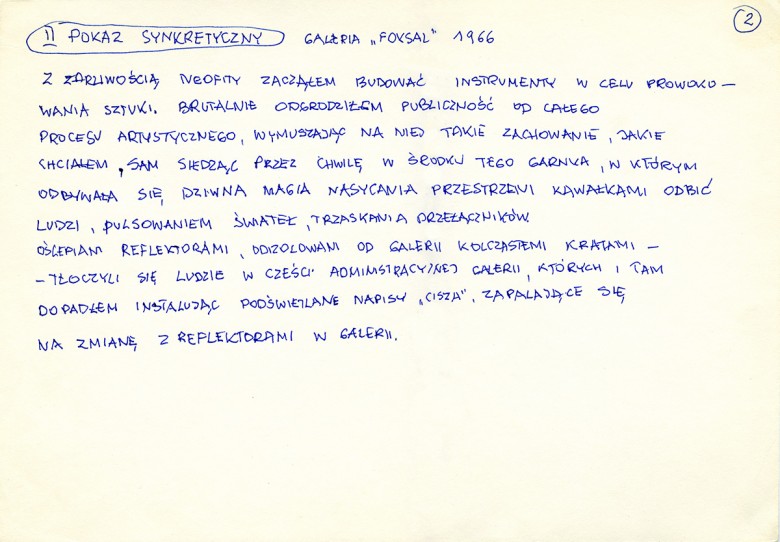 2
II POKAZ SYNKRETYCZNY GALERIA „FOKSAL" 1966
Z ŻARLIWOŚCIĄ NEOFITY ZACZĄŁEM BUDOWAĆ INSTRUMENTY W CELU PROWOKO-
WANIA SZTUKI. BRUTALNIE ODGRODZIŁEM PUBLICZNOŚĆ OD CAŁEGO
PROCESU ARTYSTYCZNEGO, WYMUSZAJĄC NA NIEJ TAKIE ZACHOWANIE, JAKIE
CHCIAŁEM, SAM SIEDZĄC PRZEZ CHWILĘ W ŚRODKU TEGO GARNKA, W KTÓRYM
ODBYWAŁA SIĘ DZIWNA MAGIA NASYCANIA PRZESTRZENI KAWAŁKAMI ODBIĆ
LUDZI, PULSOWANIEM ŚWIATEŁ, TRZASKANIA PRZEŁĄCZNIKÓW
OŚLEPIANI REFLEKTORAMI, ODIZOLOWANI OD GALERII KOLCZASTEMI KRATAMI –
– TŁOCZYLI SIĘ LUDZIE W CZĘŚCI ADMINISTRACYJNEJ GALERII, KTÓRYCH I TAM
DOPADŁEM INSTALUJĄC PODŚWIETLANE NAPISY „CISZA", ZAPALAJĄCE SIĘ
NA ZMIANĘ Z REFLEKTORAMI W GALERII.